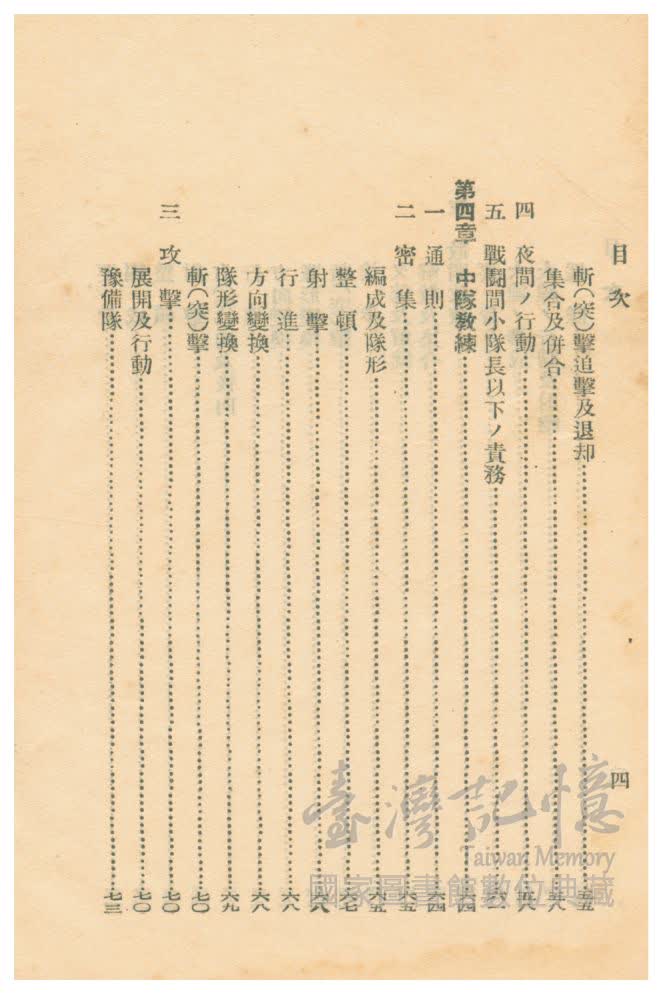 目次
四
斬(突)擊追擊及退却……五五
集合及併合……五八
四 夜間ノ行動……五八
五 戰鬪間小隊長以下ノ責務……六一
第四章 中隊敎練……六四
一 通則……六四
二 密集……六五
編成及隊形……六五
整頓……六七
射擊……六八
行進……六八
方向變換……六八
隊形變換……六九
斬(突)擊……七〇
三 攻擊……七〇
展開及行動……七〇
豫備隊……七三
臺灣記憶
Taiwan Memory
國家圖書館數位典藏